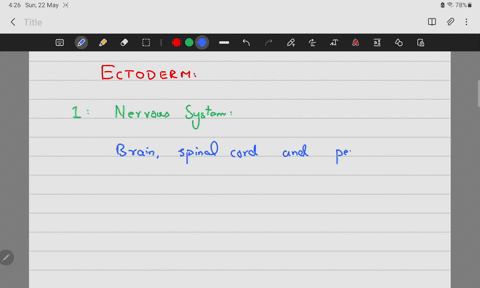 4:26 Sun, 22 May
78%
Title
ECTODERM:
1: Nervous System:
Brain, spinal cord and pe